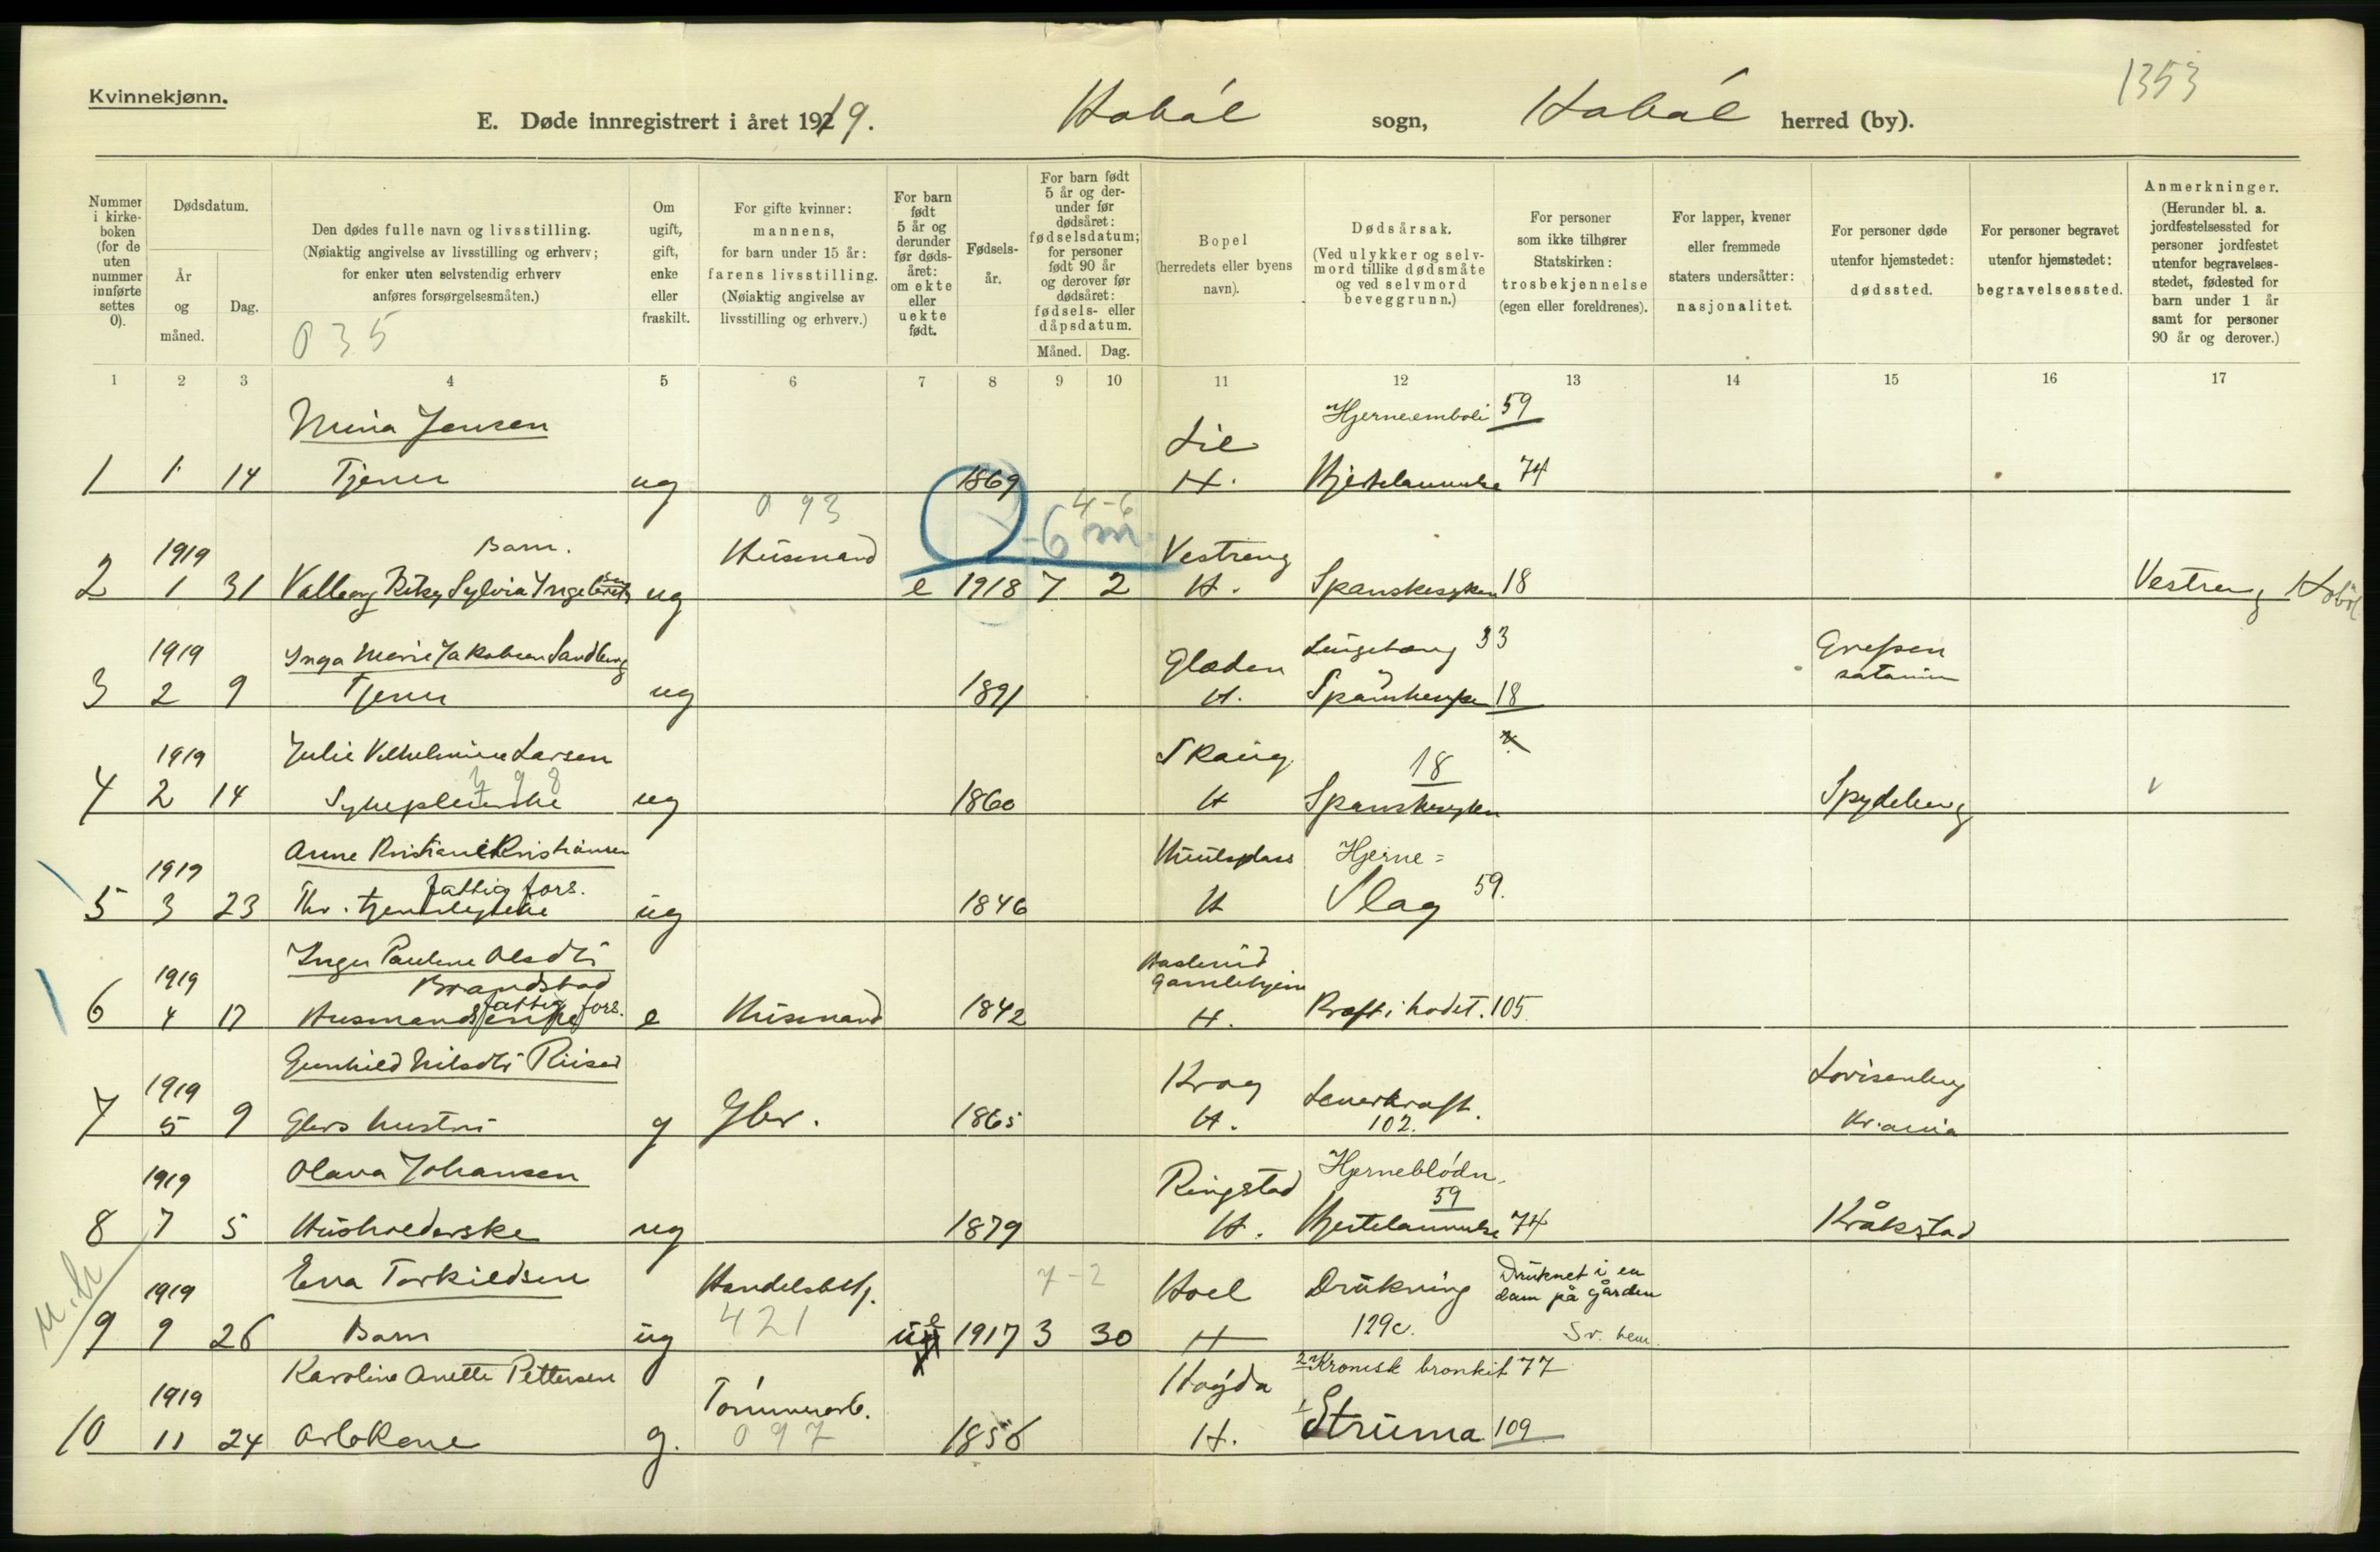 Kvinnekjønn.
1353
E. Døde innregistrert i året 1919. Hobøl sogn, Hobøl herred (by).
Nummer i kirke-boken (for de uten nummer innførte settes 0).
Dødsdatum.
År og måned.
Dag.
Den dødes fulle navn og livsstilling.
(Nøiaktig angivelse av livsstilling og erhverv;
for enker uten selvstendig erhverv
anføres forsørgelsesmåten.)
035
Om ugift, gift, enke eller fraskilt.
For gifte kvinner:
mannens,
for barn under 15 år:
farens livsstilling.
(Nøiaktig angivelse av
livsstilling og erhverv.)
For barn født 5 år og derunder før døds-året: om ekte eller uekte født.
Fødsels-år.
For barn født 5 år og der-under før dødsåret: fødselsdatum; for personer født 90 år og derover før dødsåret: fødsels- eller dåpsdatum.
Måned. Dag.
Bopel
(herredets eller byens
navn).
Dødsårsak.
(Ved ulykker og selv-
mord tillike dødsmåte
og ved selvmord
beveggrunn.)
For personer
som ikke tilhører
Statskirken:
trosbekjennelse
(egen eller foreldrenes).
For lapper, kvener
eller fremmede
staters undersåtter:
nasjonalitet.
For personer døde
utenfor hjemstedet:
dødssted.
For personer begravet
utenfor hjemstedet:
begravelsessted.
Anmerkninger.
(Herunder bl. a.
jordfestelsessted for
personer jordfestet
utenfor begravelses-
stedet, fødested for
barn under 1 år
samt for personer
90 år og derover.)
1 2 3 4 5 6 7 8 9 10 11 12 13 14 15 16 17
Jensen Lie Hjerneemboli 59
1 1 14 Tjener ug 1869 H. Hjertelammelse 74
093 4-6
6 m
1919 Barn. Husmand Vestreng
2 1 31 Valborg Sylvia ug e 1918 7 2 H. Spanskesyken 18 Vestreng Hobøl
1919 Inga Marie Jakobsen Sandberg Glæden Lungebet 33 Grefsen
3 2 9 Tjener ug 1891 H. 18
1919 Julie Vilhelmine Larsen Skaug 18
398
4 2 14 Sykepleierske ug 1860 H Spanskesyken Spydeberg
1919 Anne Kristiane Kristiansen Hjerne=
fattig fors.
5 3 23 ug 1846 H Slag 59.
1919 Inger Pauline Olsdtr
Brandstad Gamlehjem
fattig fors.
6 4 17 Husmandsenke e Husmand 1842 H. Kræft i hodet. 105
1919 Gunhild Nilsdtr Krog Leverkræft. Lovisenberg
7 5 9 Gbrs hustru g Gbr. 1865 H. 102. Kr.ania
1919 Olava Johansen Ringstad Hjerneblødn.
59
8 7 5 Husholderske ug 1879 H. Hjertelammelse 74 Kråkstad
1919 Eva Torkildsen 7-2 Hoel Drukning Druknet i en
dam på gården
9 9 26 Barn ug 421 e 1917 3 30 H 129c.
1919 Karoline Anette Pettersen Tømmerarb. Høyda 2 Kronisk bronkit 77
10 11 24 Arb.kone g. 097 1856 H. 1 Struma 109